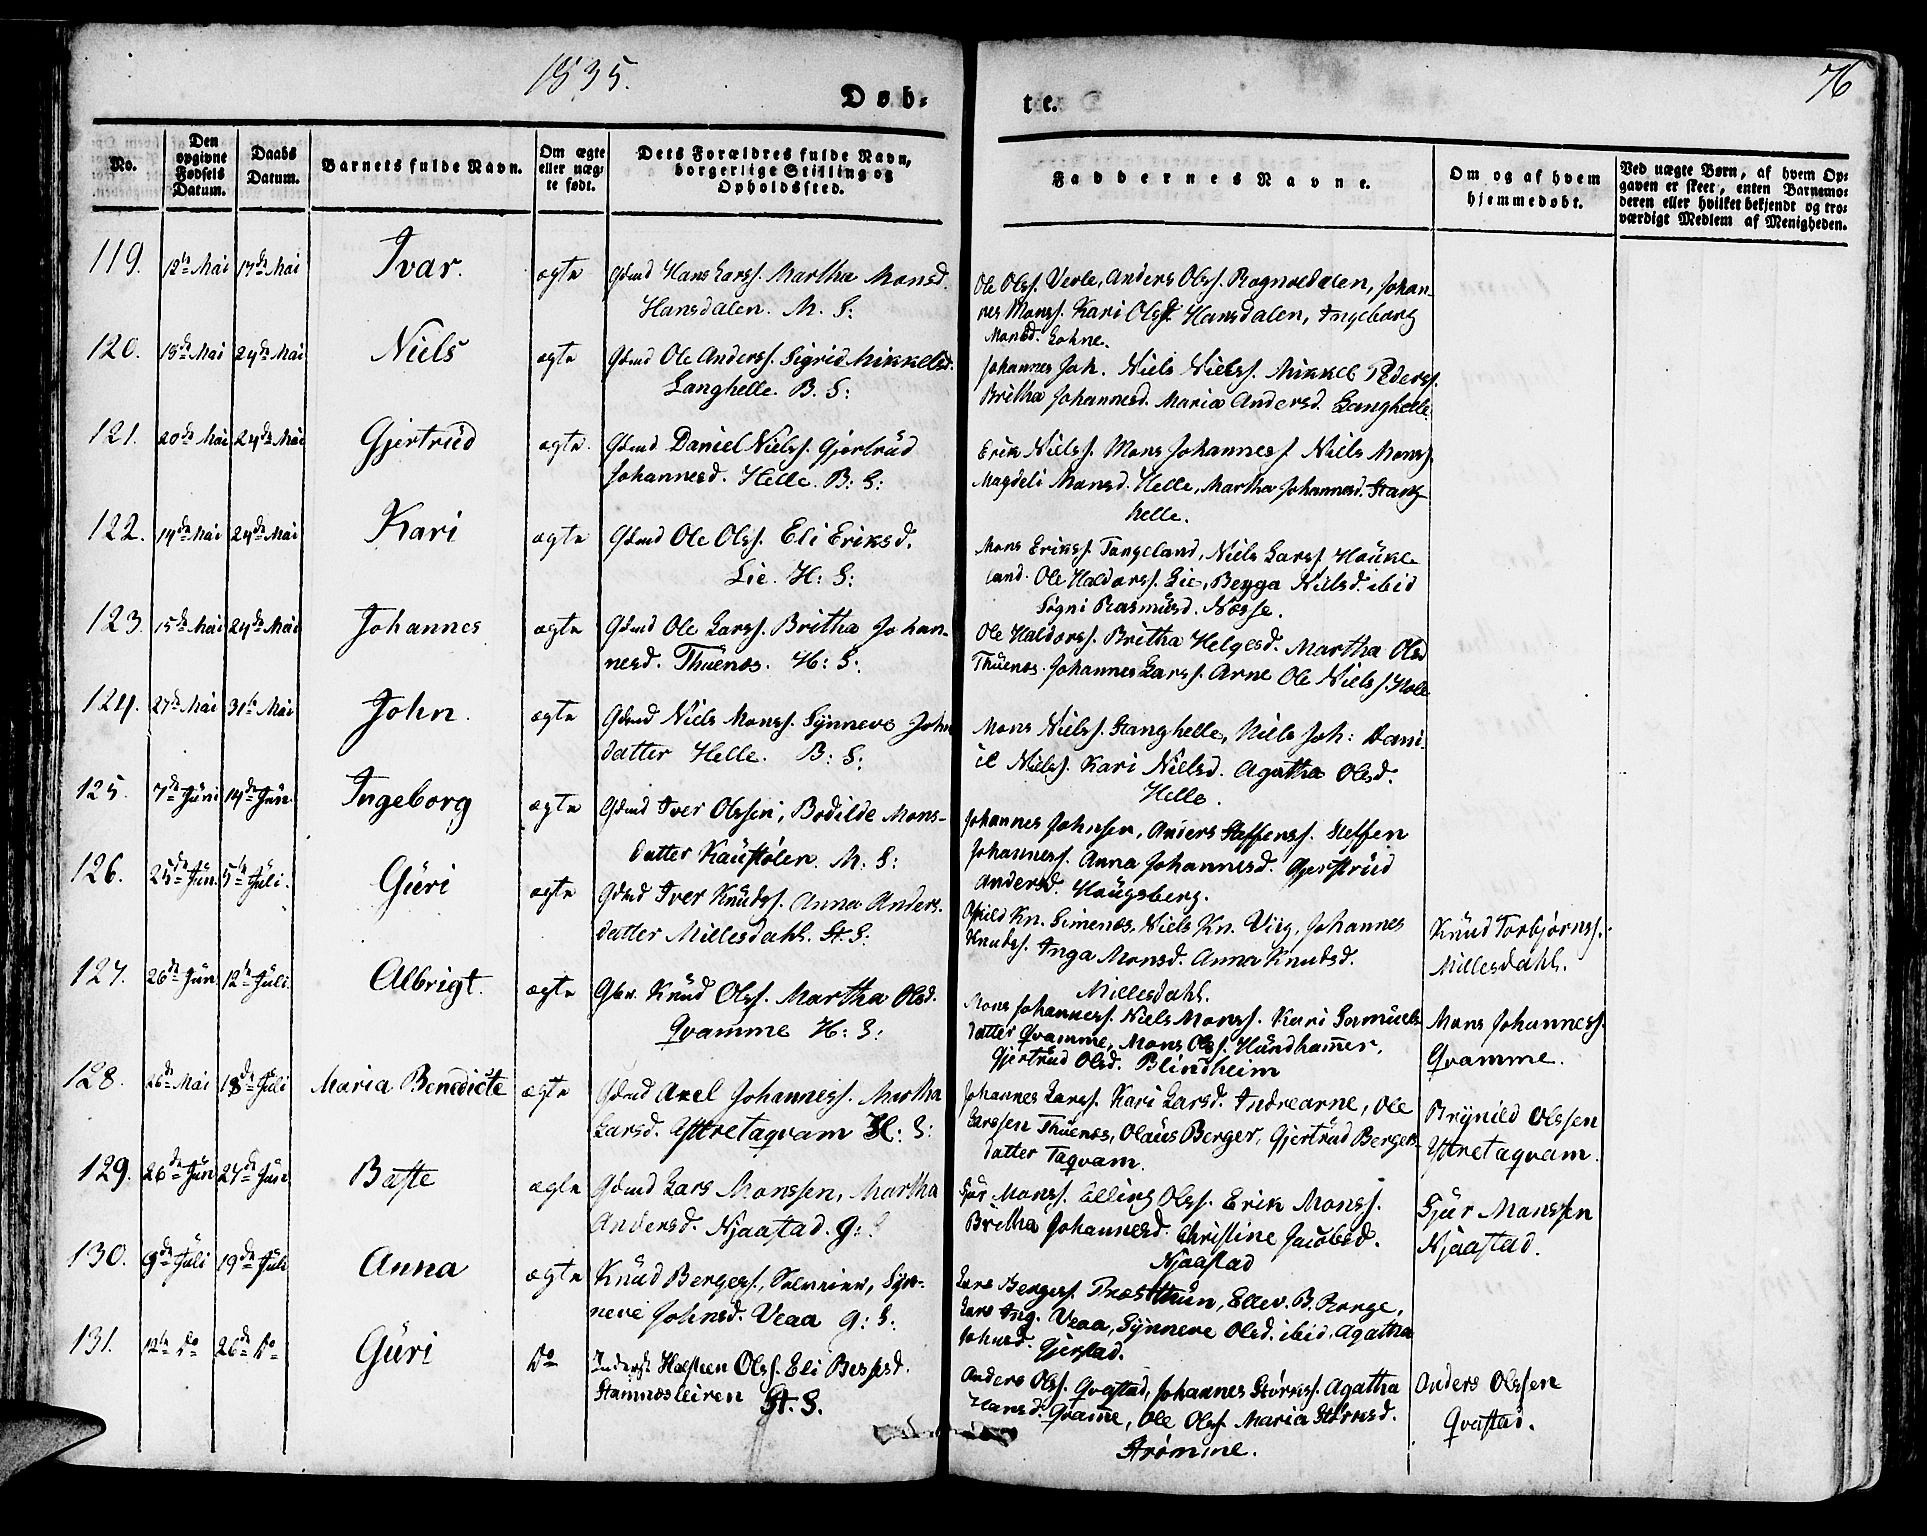 1835.
76
Døb-
te.
No.
Den
opgivne
Fødsels
Datum.
Daabs
Datum.
Barnets fulde Navn.
Om ægte
eller uæg-
te født.
Dets Forældres fulde Navn,
borgerlige Stilling og
Opholdssted.
Faddernes Navne.
Om og af hvem
hjemmedøbt.
Ved uægte Børn, af hvem Op-
gaven er skeet, enten Barnemo-
deren eller hvilket bekjendt og tro-
værdigt Medlem af Menigheden.
119. 12te Mai 17de Mai Ivar. ægte Gdmd Hans Larss. Martha Monsd.
Hansdalen. M. S:
Ole Olss. Verle, Anders Olss. Rognvedalen, Johan-
nes Monss. Kari Olsd. Hansdalen, Ingeborg
Monsd. Lohne.
120. 18de Mai 24de Mai Niels ægte Gdmd Ole Anderss. Sigrid Mikkelsd.
Langhelle. B. S:
Johannes Joh. Niels Nielss. Mikkel Pederss.
Britha Johannesd. Maria Andersd. Langhelle
121. 20de Mai 24de Mai Gjertrud ægte. Gdmd Daniel Nielss. Gjertrud
Johannesd. Helle. B: S:
Erik Nielss. Mons Johanness. Niels Monss.
Magdeli Monsd. Helle, Martha Johannesd. Stang-
helle.
122. 14de Mai 24de Mai Kari ægte Gdmd Ole Olss. Eli Eriksd.
Lie. H: S:
Mons Erikss. Tangeland, Niels Larss. Houke-
land. Ole Haldorss. Lie, Brygga Nielsd. ibid
Søgni Rasmusd. Næsse.
123. 15de Mai 24de Mai Johannes ægte Gdmd Ole Larss. Britha Johan-
nesd. Thuenæs. H: S:
Ole Haldorss. Britha Helgesd. Martha Olsd
Thuenæs. Johannes Larss. Arne Ole Nielss. Hole
124. 27de Mai 31te Mai John. ægte Gdmd Niels Monss. Synneve John
datter Helle. B: S:
Mons Nielss. Stanghelle, Niels Joh: Dani-
il Nielss. Kari Nielsd. Agatha Olsd.
Helle.
125. 7de Juni 14de Jun. Ingeborg ægte Gdmd Iver Olssen, Bodilde Mons-
datter Kaustølen. M. S:
Johannes Johnsen, Anders Staffenss. Steffen
Johanness. Anna Johannesd. Gjertrud
Andersd. Hougsberg.
126. 25de Jun. 5te Juli. Guri ægte Gdmd Iver Knudss. Anna Anders-
datter Millesdahl. St. S:
Kn. Simenæs, Niels Kn. Viig, Johannes
Knudss. Inga Monsd. Anna Knudsd.
Millesdahl.
Knud Torbjørnss.
Millesdahl.
127. 26de Jun. 12te Juli. Albrigt. ægte Knud Olss. Martha Olsd.
Qvamme H: S:
Mons Johanness. Niels Monss. Kari Samuels
datter Qvamme, Mons Olss. Hundhamer,
Gjertrud Olsd. Blindheim
Mons Johanness.
Qvamme.
128. 26de Mai 18de Juli Maria Benedicte ægte Gdmd Axel Johanness. Martha
Larsd. Yttretaqvam H: S:
Johannes Larss. Kari Larsd. Indrearne, Ole
Larssen Thuenæs, Olaus Berger, Gjertrud Bergers-
datter Taqvam.
Brynild Olssen
Yttretaqvam.
129. 26de Jun 27de Juni Baste ægte Gdmd Lars Monssen, Martha
Andersd. Njaastad. G: S
Sjur Monss. Elling Olss. Erik Monss.
Britha Johannesd. Christine Jacobsd.
Njaastad
Sjur Monssen
Njaastad.
130. 9de Juli 19de Juli Anna ægte Knud Bergess., Syn-
neve Johnsd. Veaa G: S.
Lars Bergess. Præsthun, Ellev. B. Ronge,
Lars Ing. Veaa, Synneve Olsd. ibid, Agatha
Johnsd. Gjerstad.
131. 12te Do 26de Do Guri Do Inderst Halsteen Olss. Eli Bessesd.
Stamnæsleiren St. S.
Anders Olss. Qvastad, Johannes Størkss. Agatha
Hansd. Qvamme, Ole Olss. Maria Størksd.
Strømme.
Anders Olssen
Qvastad.